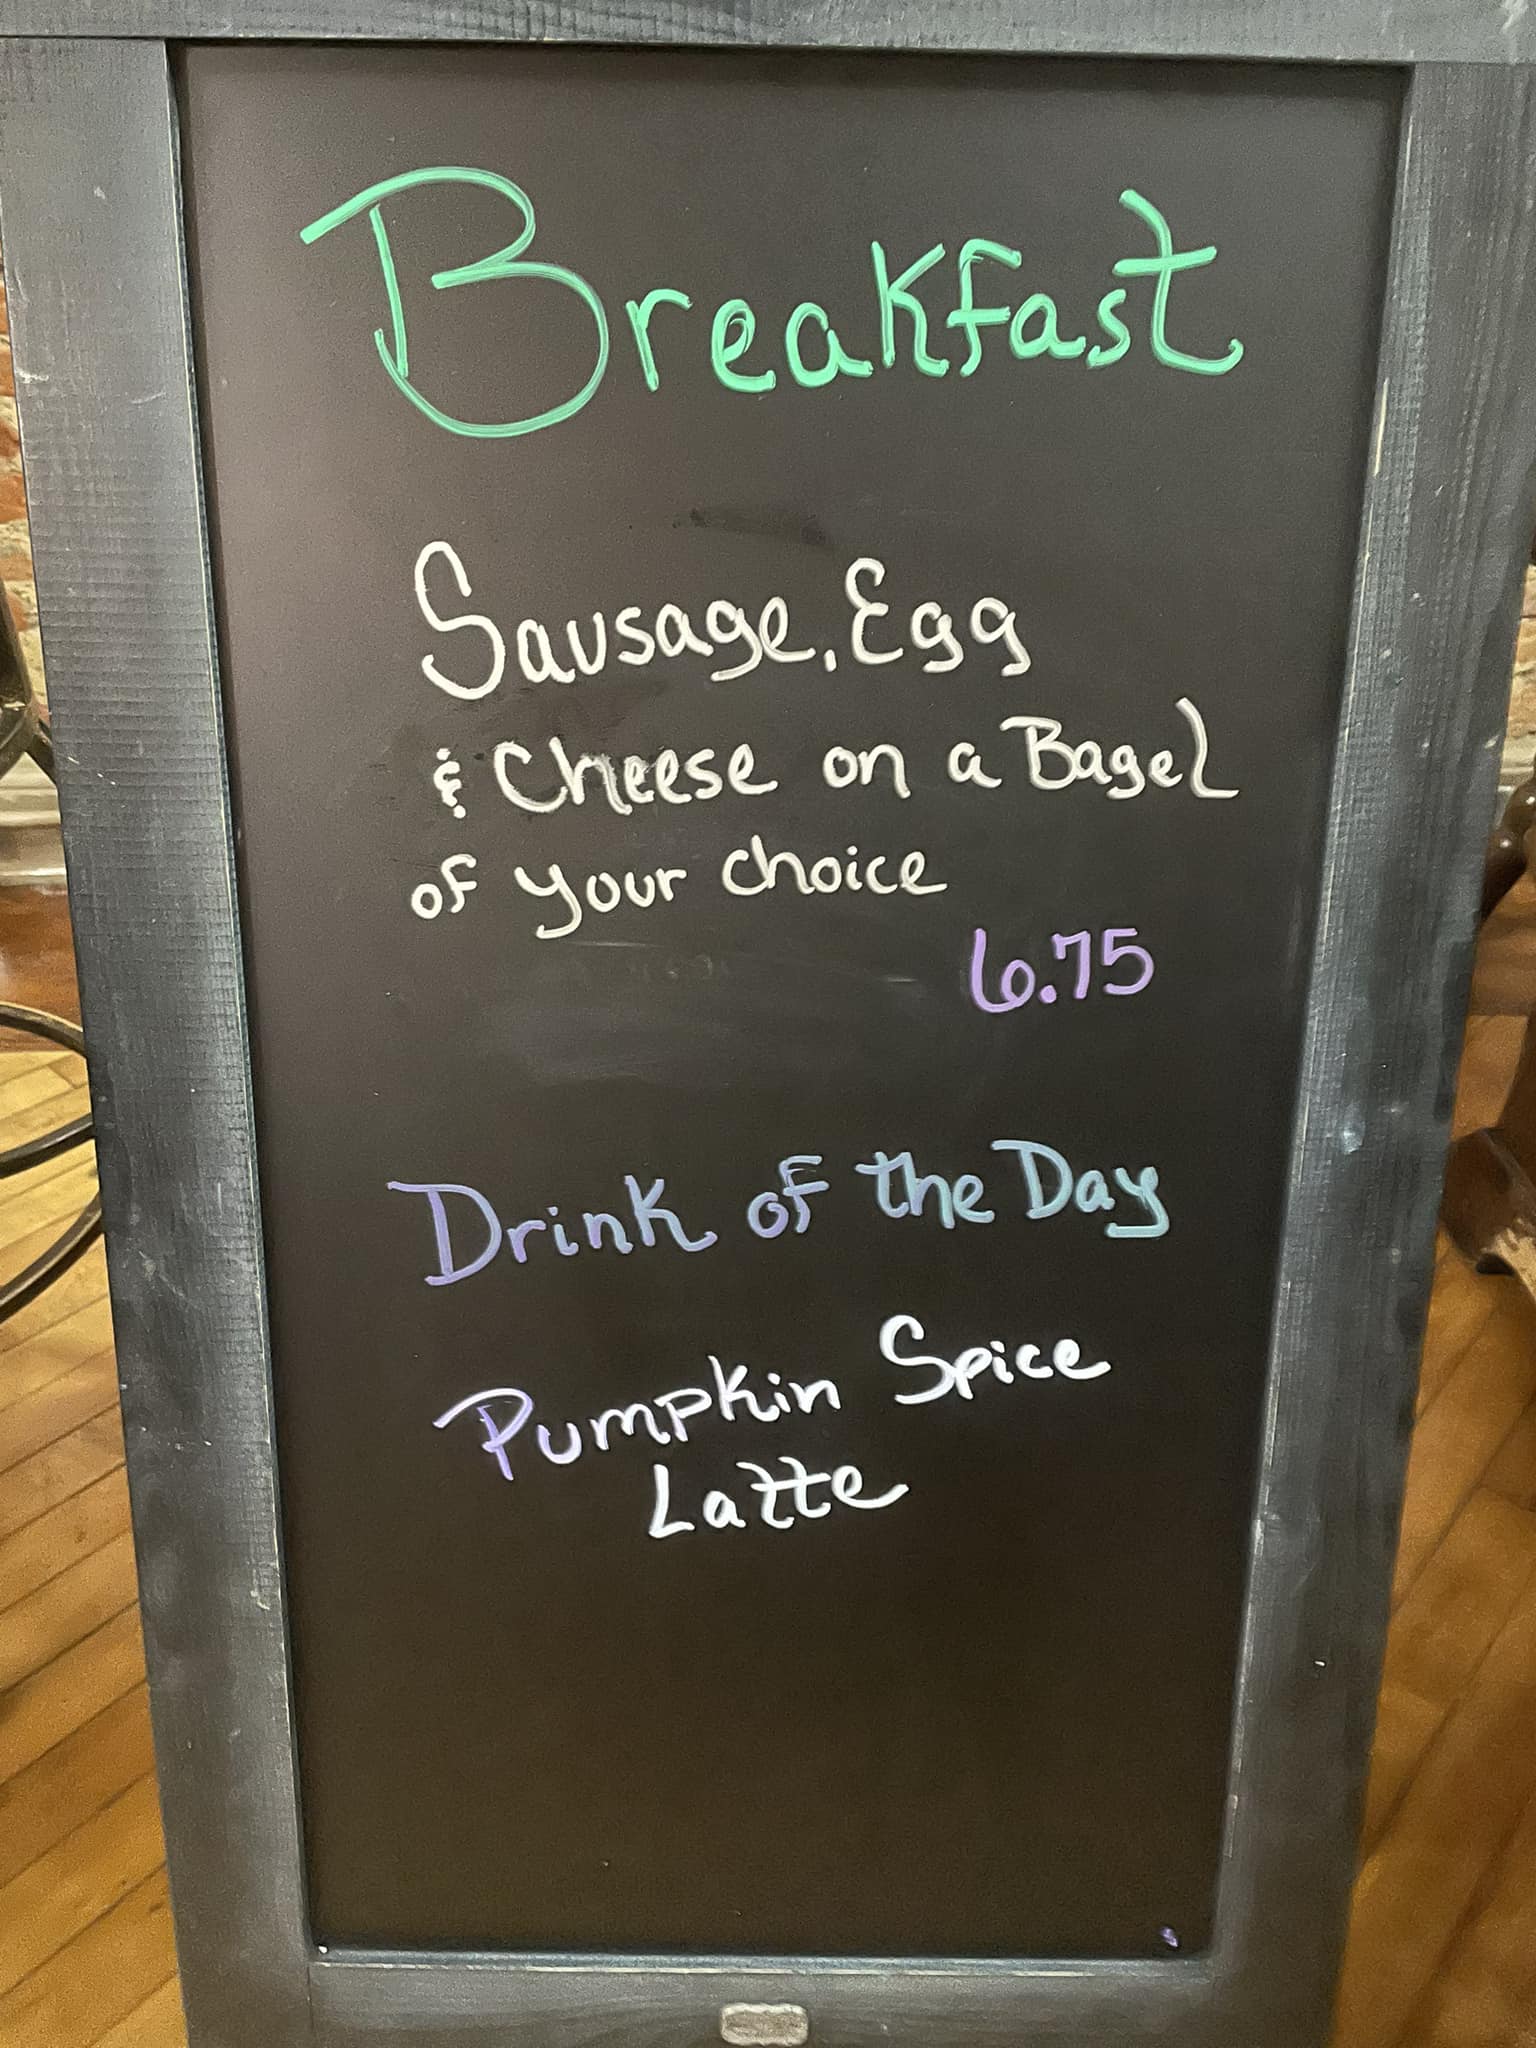 Breakfast
Sausage, Egg
& Cheese on a Bagel
of your choice
6.75
Drink of the Day
Pumpkin Spice
Latte